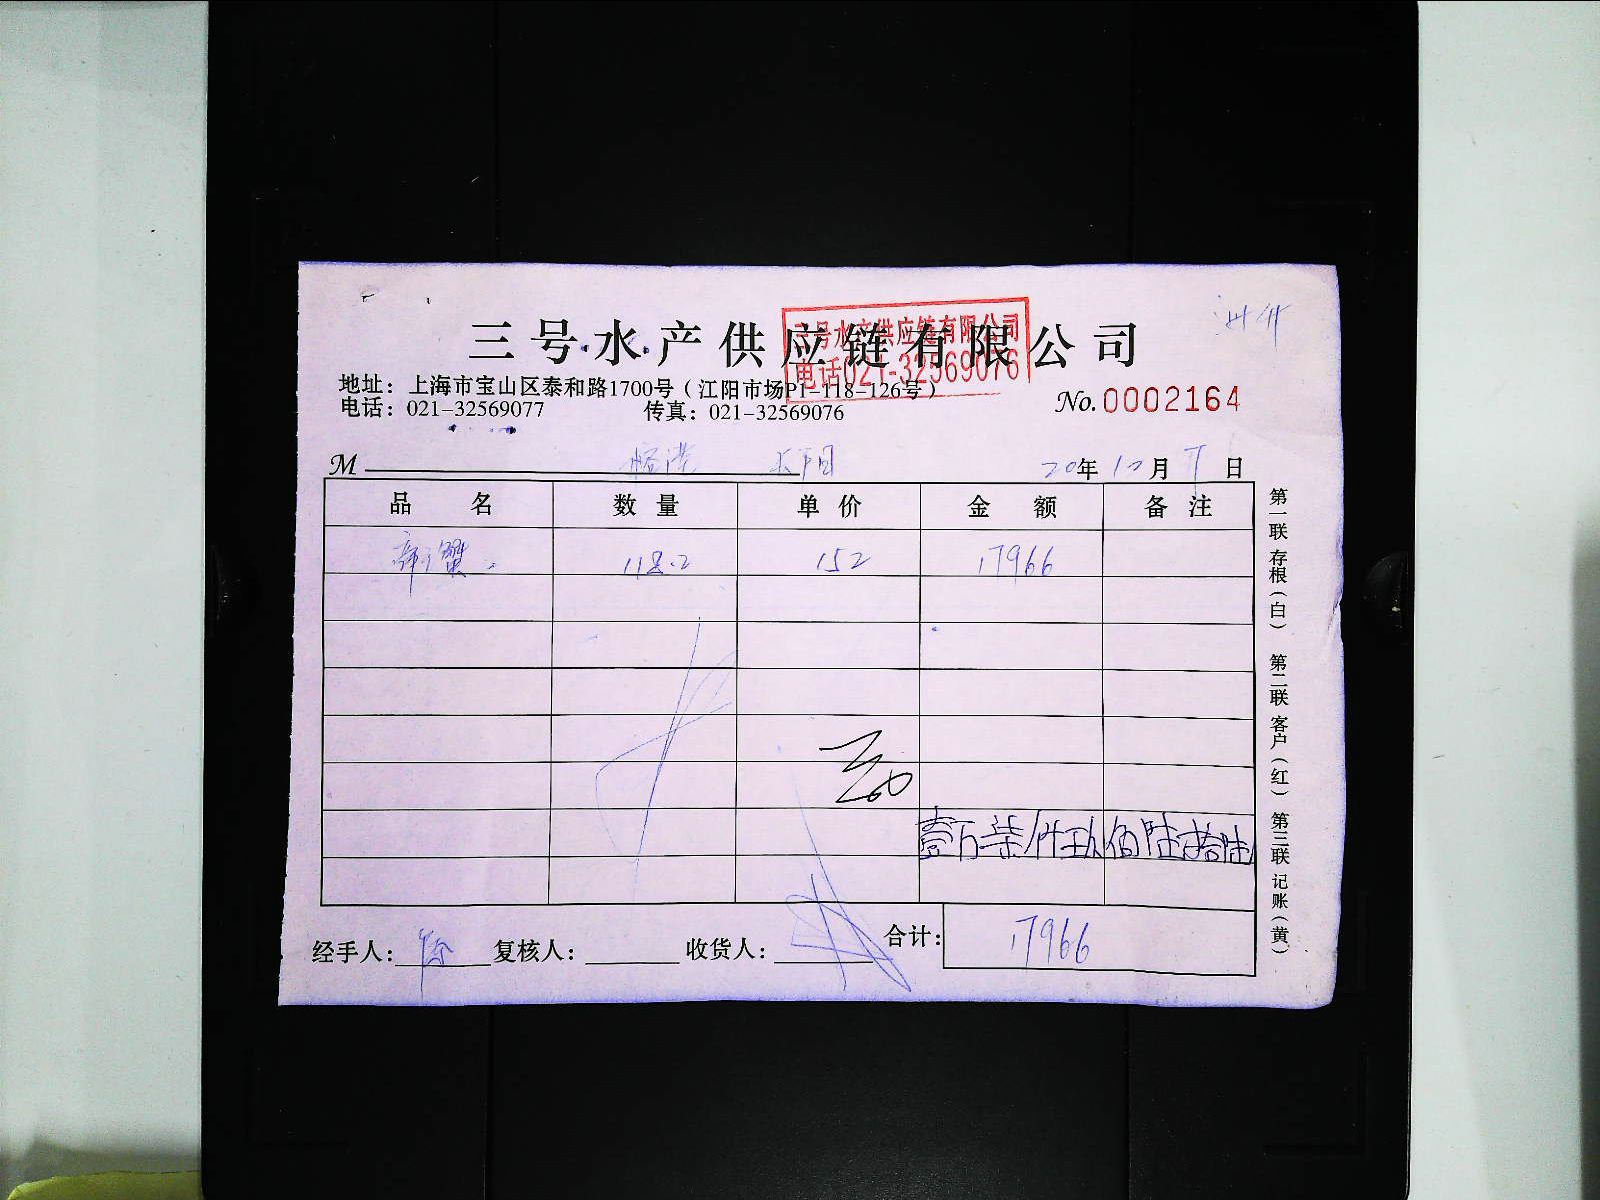 三号水产供应链有限公司
三号水产供应链有限公司
电话021-32569076
地址：上海市宝山区泰和路1700号（江阳市场P1-118-126号）
电话：021-32569077 传真：021-32569076
No.0002164
M 20年10月 日
品名 数量 单价 金额 备注
蟹 118.2 152 17966
壹万柒仟玖佰陆拾陆
经手人： 复核人： 收货人： 合计： 17966
第一联存根（白） 第二联客户（红） 第三联记账（黄）